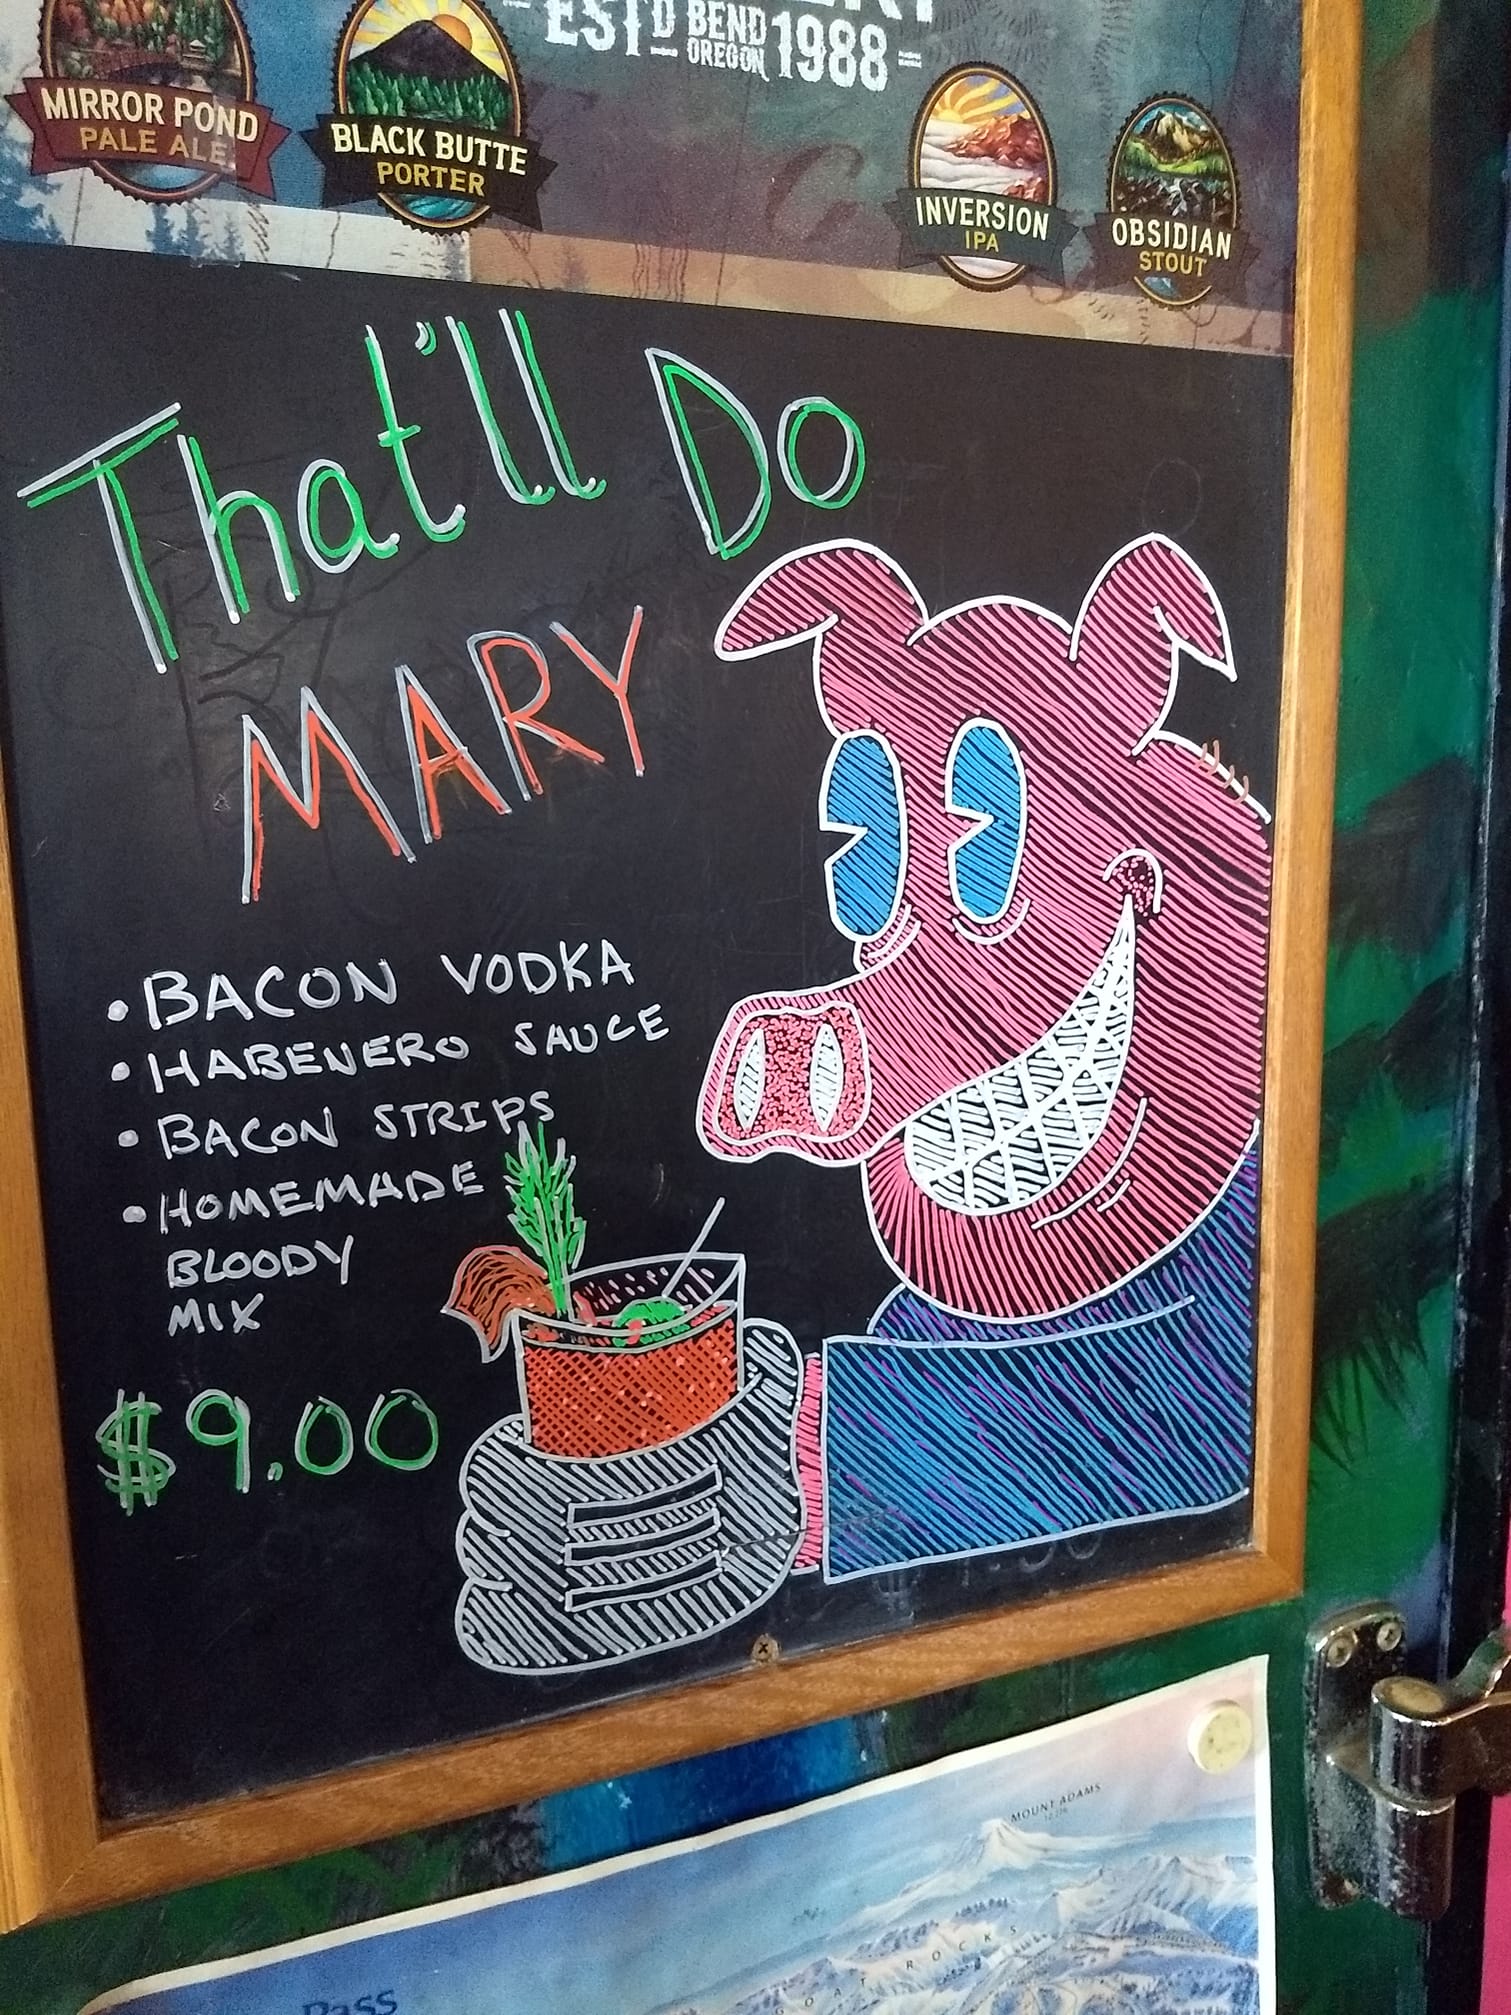 EST'D BEND OREGON 1988
MIRROR POND
PALE ALE
BLACK BUTTE
PORTER
INVERSION
IPA
OBSIDIAN
STOUT
That'll Do
MARY
• BACON VODKA
• HABENERO SAUCE
• BACON STRIPS
• HOMEMADE
BLOODY
MIX
$9.00
MOUNT ADAMS
GOAT ROCKS
Pass